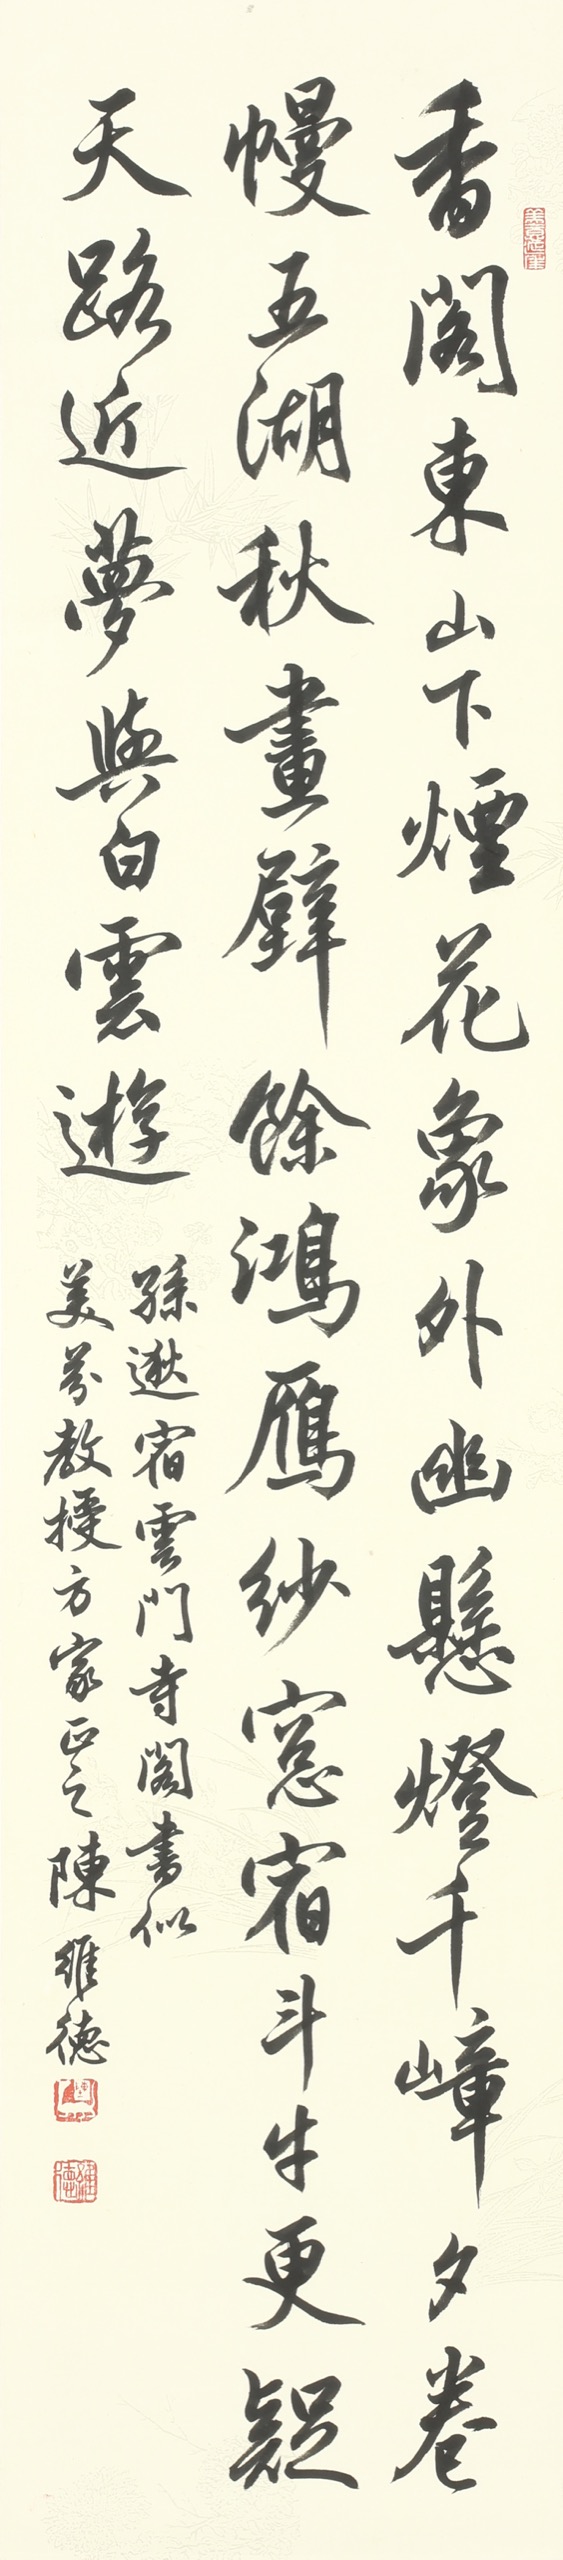 香閣東山下煙花象外幽懸燈千嶂夕卷
幔五湖秋畫壁餘鴻雁紗窓宿斗牛更疑
天路近夢與白雲遊
孫逖宿雲門寺閣書似
美芬教授方家正之陳維德